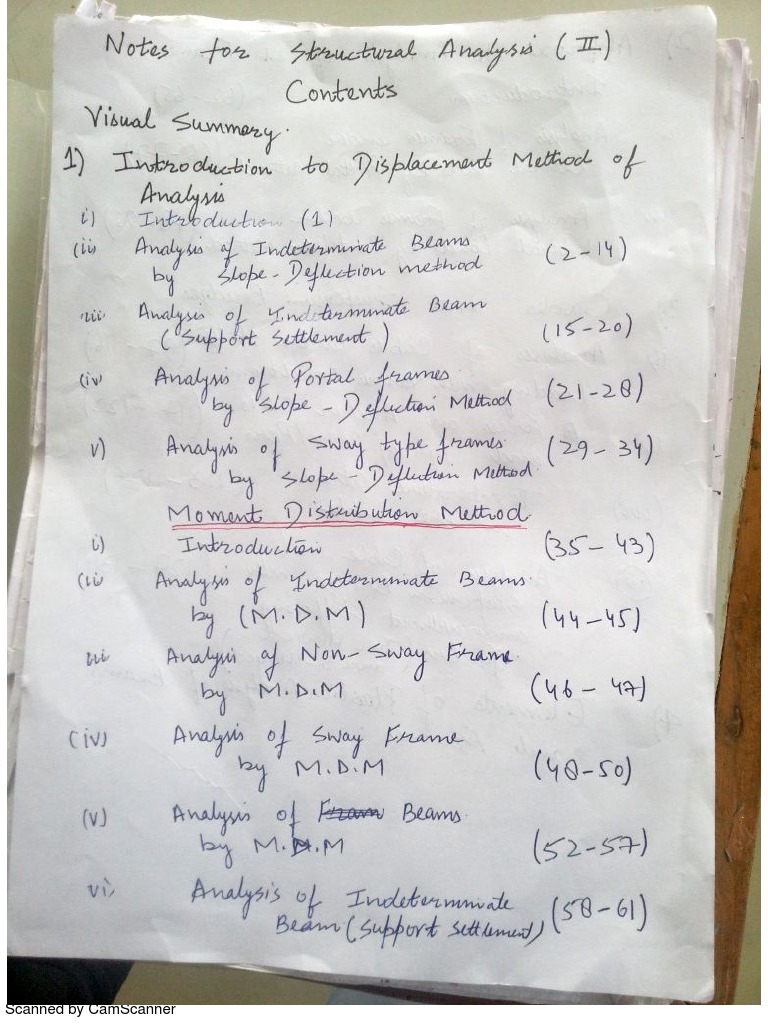 Notes for Structural Analysis (II)
Contents
Visual Summary.
1) Introduction to Displacement Method of
Analysis
i) Introduction (1)
(ii) Analysis of Indeterminate Beams
by Slope-Deflection method (2-14)
iii) Analysis of Indeterminate Beam
(Support Settlement) (15-20)
(iv) Analysis of Portal frames
by Slope-Deflection Method (21-28)
v) Analysis of Sway type frames (29-34)
by Slope-Deflection Method
Moment Distribution Method
i) Introduction (35-43)
(ii) Analysis of Indeterminate Beams.
by (M.D.M) (44-45)
iii Analysis of Non-Sway Frame
by M.D.M (46-47)
(iv) Analysis of Sway Frame
by M.D.M (48-50)
(v) Analysis of Beams.
by M.D.M (52-57)
vi) Analysis of Indeterminate (58-61)
Beam (Support Settlement)
Scanned by CamScanner